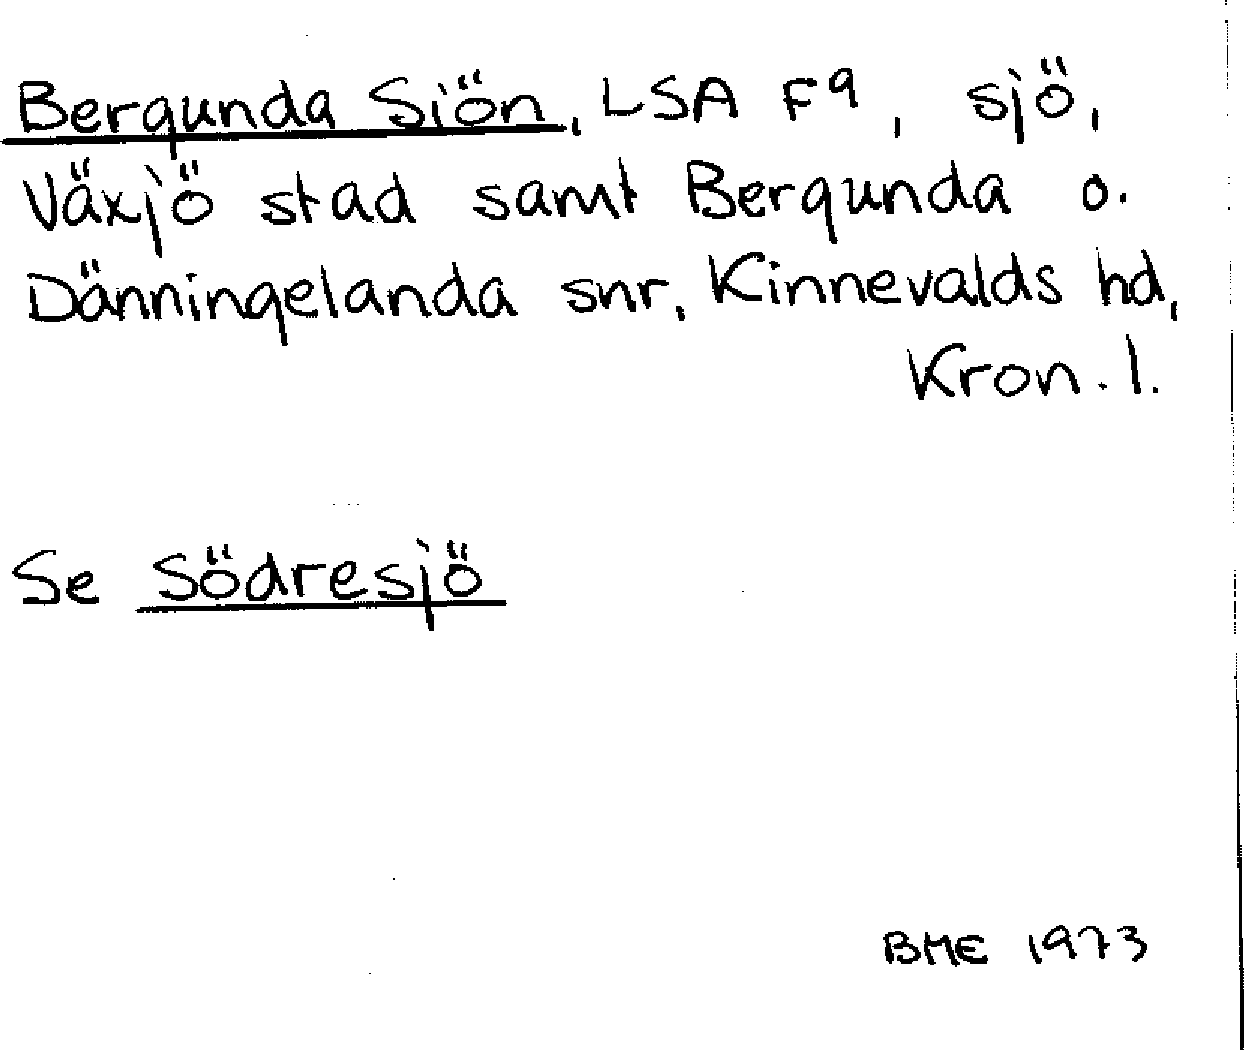 Bergunda Siön, LSA F9, sjö,
Växjö stad samt Bergunda o.
Dänningelanda snr, Kinnevalds hd,
Kron. l.
Se Södresjö
BME 1973